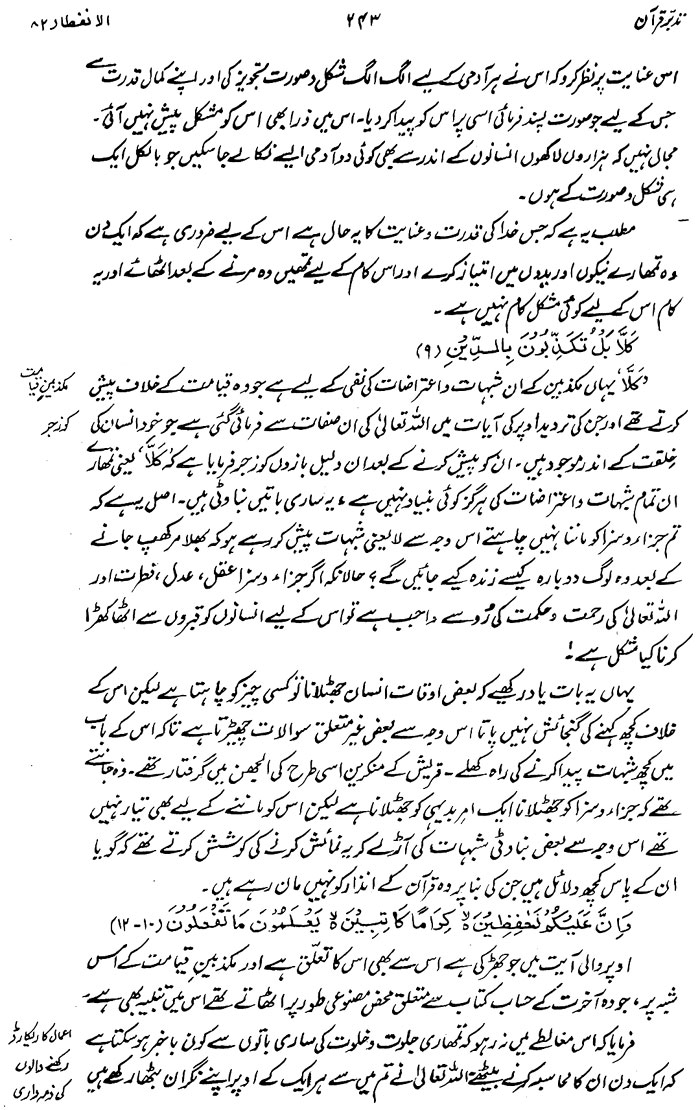 تدبّر قرآن ۲۴۳ الانفطار ۸۲
اس عنایت پر نظر کرو کہ اس نے ہر آدمی کے لیے الگ الگ شکل و صورت تجویز کی اور اپنے کمال قدرت سے
جس کے لیے جو صورت پسند فرمائی اسی پر اس کو پیدا کر دیا۔ اس میں ذرا بھی اس کو مشکل پیش نہیں آئی۔
مجال نہیں کہ ہزاروں لاکھوں انسانوں کے اندر سے بھی کوئی دو آدمی ایسے نکالے جا سکیں جو بالکل ایک
ہی شکل و صورت کے ہوں۔
مطلب یہ ہے کہ جس خدا کی قدرت و عنایت کا یہ حال ہے اس کے لیے ضروری ہے کہ ایک دن
وہ تمھارے نیکوں اور بدوں میں امتیاز کرے اور اس کام کے لیے تمھیں وہ مرنے کے بعد اٹھائے اور یہ
کام اس کے لیے کوئی مشکل کام نہیں ہے۔
كَلَّا بَلْ تُكَذِّبُوْنَ بِالدِّيْنِ (۹)
’کَلَّا‘ یہاں مکذبین کے ان شبہات و اعتراضات کی نفی کے لیے ہے جو وہ قیامت کے خلاف پیش
مکذبینِ قیامت
کرتے تھے اور جن کی تردید اوپر کی آیات میں اللہ تعالیٰ کی ان صفات سے فرمائی گئی ہے جو خود انسان کی
کو زجر
خلقت کے اندر موجود ہیں۔ ان کو پیش کرنے کے بعد ان دلیل بازوں کو زجر فرمایا ہے کہ ’کَلَّا‘ یعنی تمھارے
ان تمام شبہات و اعتراضات کی ہرگز کوئی بنیاد نہیں ہے، یہ ساری باتیں بناوٹی ہیں۔ اصل یہ ہے کہ
تم جزاء و سزا کو ماننا نہیں چاہتے اس وجہ سے لایعنی شبہات پیش کر رہے ہو کہ بھلا مر کھپ جانے
کے بعد وہ لوگ دوبارہ کیسے زندہ کیے جائیں گے؟ حالانکہ اگر جزاء و سزا عقل، عدل، فطرت اور
اللہ تعالیٰ کی رحمت و حکمت کی رُو سے واجب ہے تو اس کے لیے انسانوں کو قبروں سے اٹھا کھڑا
کرنا کیا مشکل ہے!
یہاں یہ بات یاد رکھیے کہ بعض اوقات انسان جھٹلانا تو کسی چیز کو چاہتا ہے لیکن اس کے
خلاف کچھ کہنے کی گنجائش نہیں پاتا اس وجہ سے بعض غیر متعلق سوالات چھیڑتا ہے تاکہ اس کے باب
میں کچھ شبہات پیدا کرنے کی راہ کھلے۔ قریش کے منکرین اسی طرح کی الجھن میں گرفتار تھے۔ وہ جانتے
تھے کہ جزاء و سزا کو جھٹلانا ایک امر بدیہی کو جھٹلانا ہے لیکن اس کو ماننے کے لیے بھی تیار نہیں
تھے اس وجہ سے بعض بناوٹی شبہات کی آڑ لے کر یہ نمائش کرنے کی کوشش کرتے تھے کہ گویا
ان کے پاس کچھ دلائل ہیں جن کی بنا پر وہ قرآن کے انذار کو نہیں مان رہے ہیں۔
وَاِنَّ عَلَيْكُمْ لَحٰفِظِيْنَ لا كِرَامًا كَاتِبِيْنَ لا يَعْلَمُوْنَ مَا تَفْعَلُوْنَ (۱۰-۱۲)
اوپر والی آیت میں جو جھڑکی ہے اس سے بھی اس کا تعلّق ہے اور مکذبینِ قیامت کے اس
شبہ پر، جو وہ آخرت کے حساب کتاب سے متعلق محض مصنوعی طور پر اٹھاتے تھے اس میں تنبیہ بھی ہے۔
فرمایا کہ اس مغالطے میں نہ رہو کہ تمھاری جلوت و خلوت کی ساری باتوں سے کون باخبر ہو سکتا ہے
اعمال کا ریکارڈ
کہ ایک دن ان کا محاسبہ کرنے بیٹھے اللہ تعالیٰ نے تم میں سے ہر ایک کے اوپر اپنے نگران بٹھا رکھے ہیں
رکھنے والوں
کی ذمہ داری